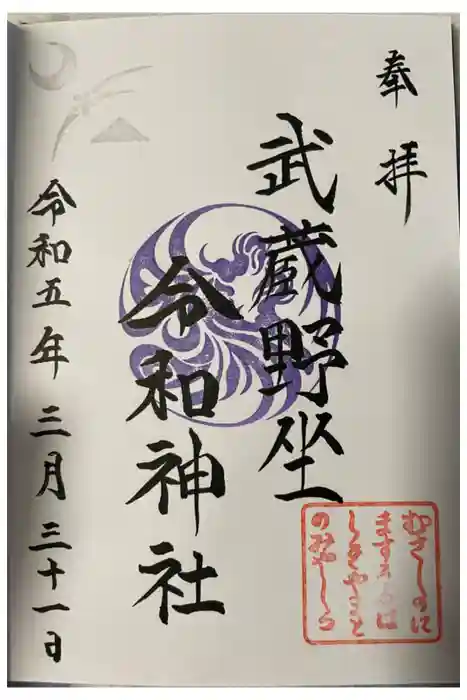 奉拝
武蔵野坐
令和神社
令和五年 三月 三十一日
むさしのに
ますうるは
しきやまと
のみやしろ